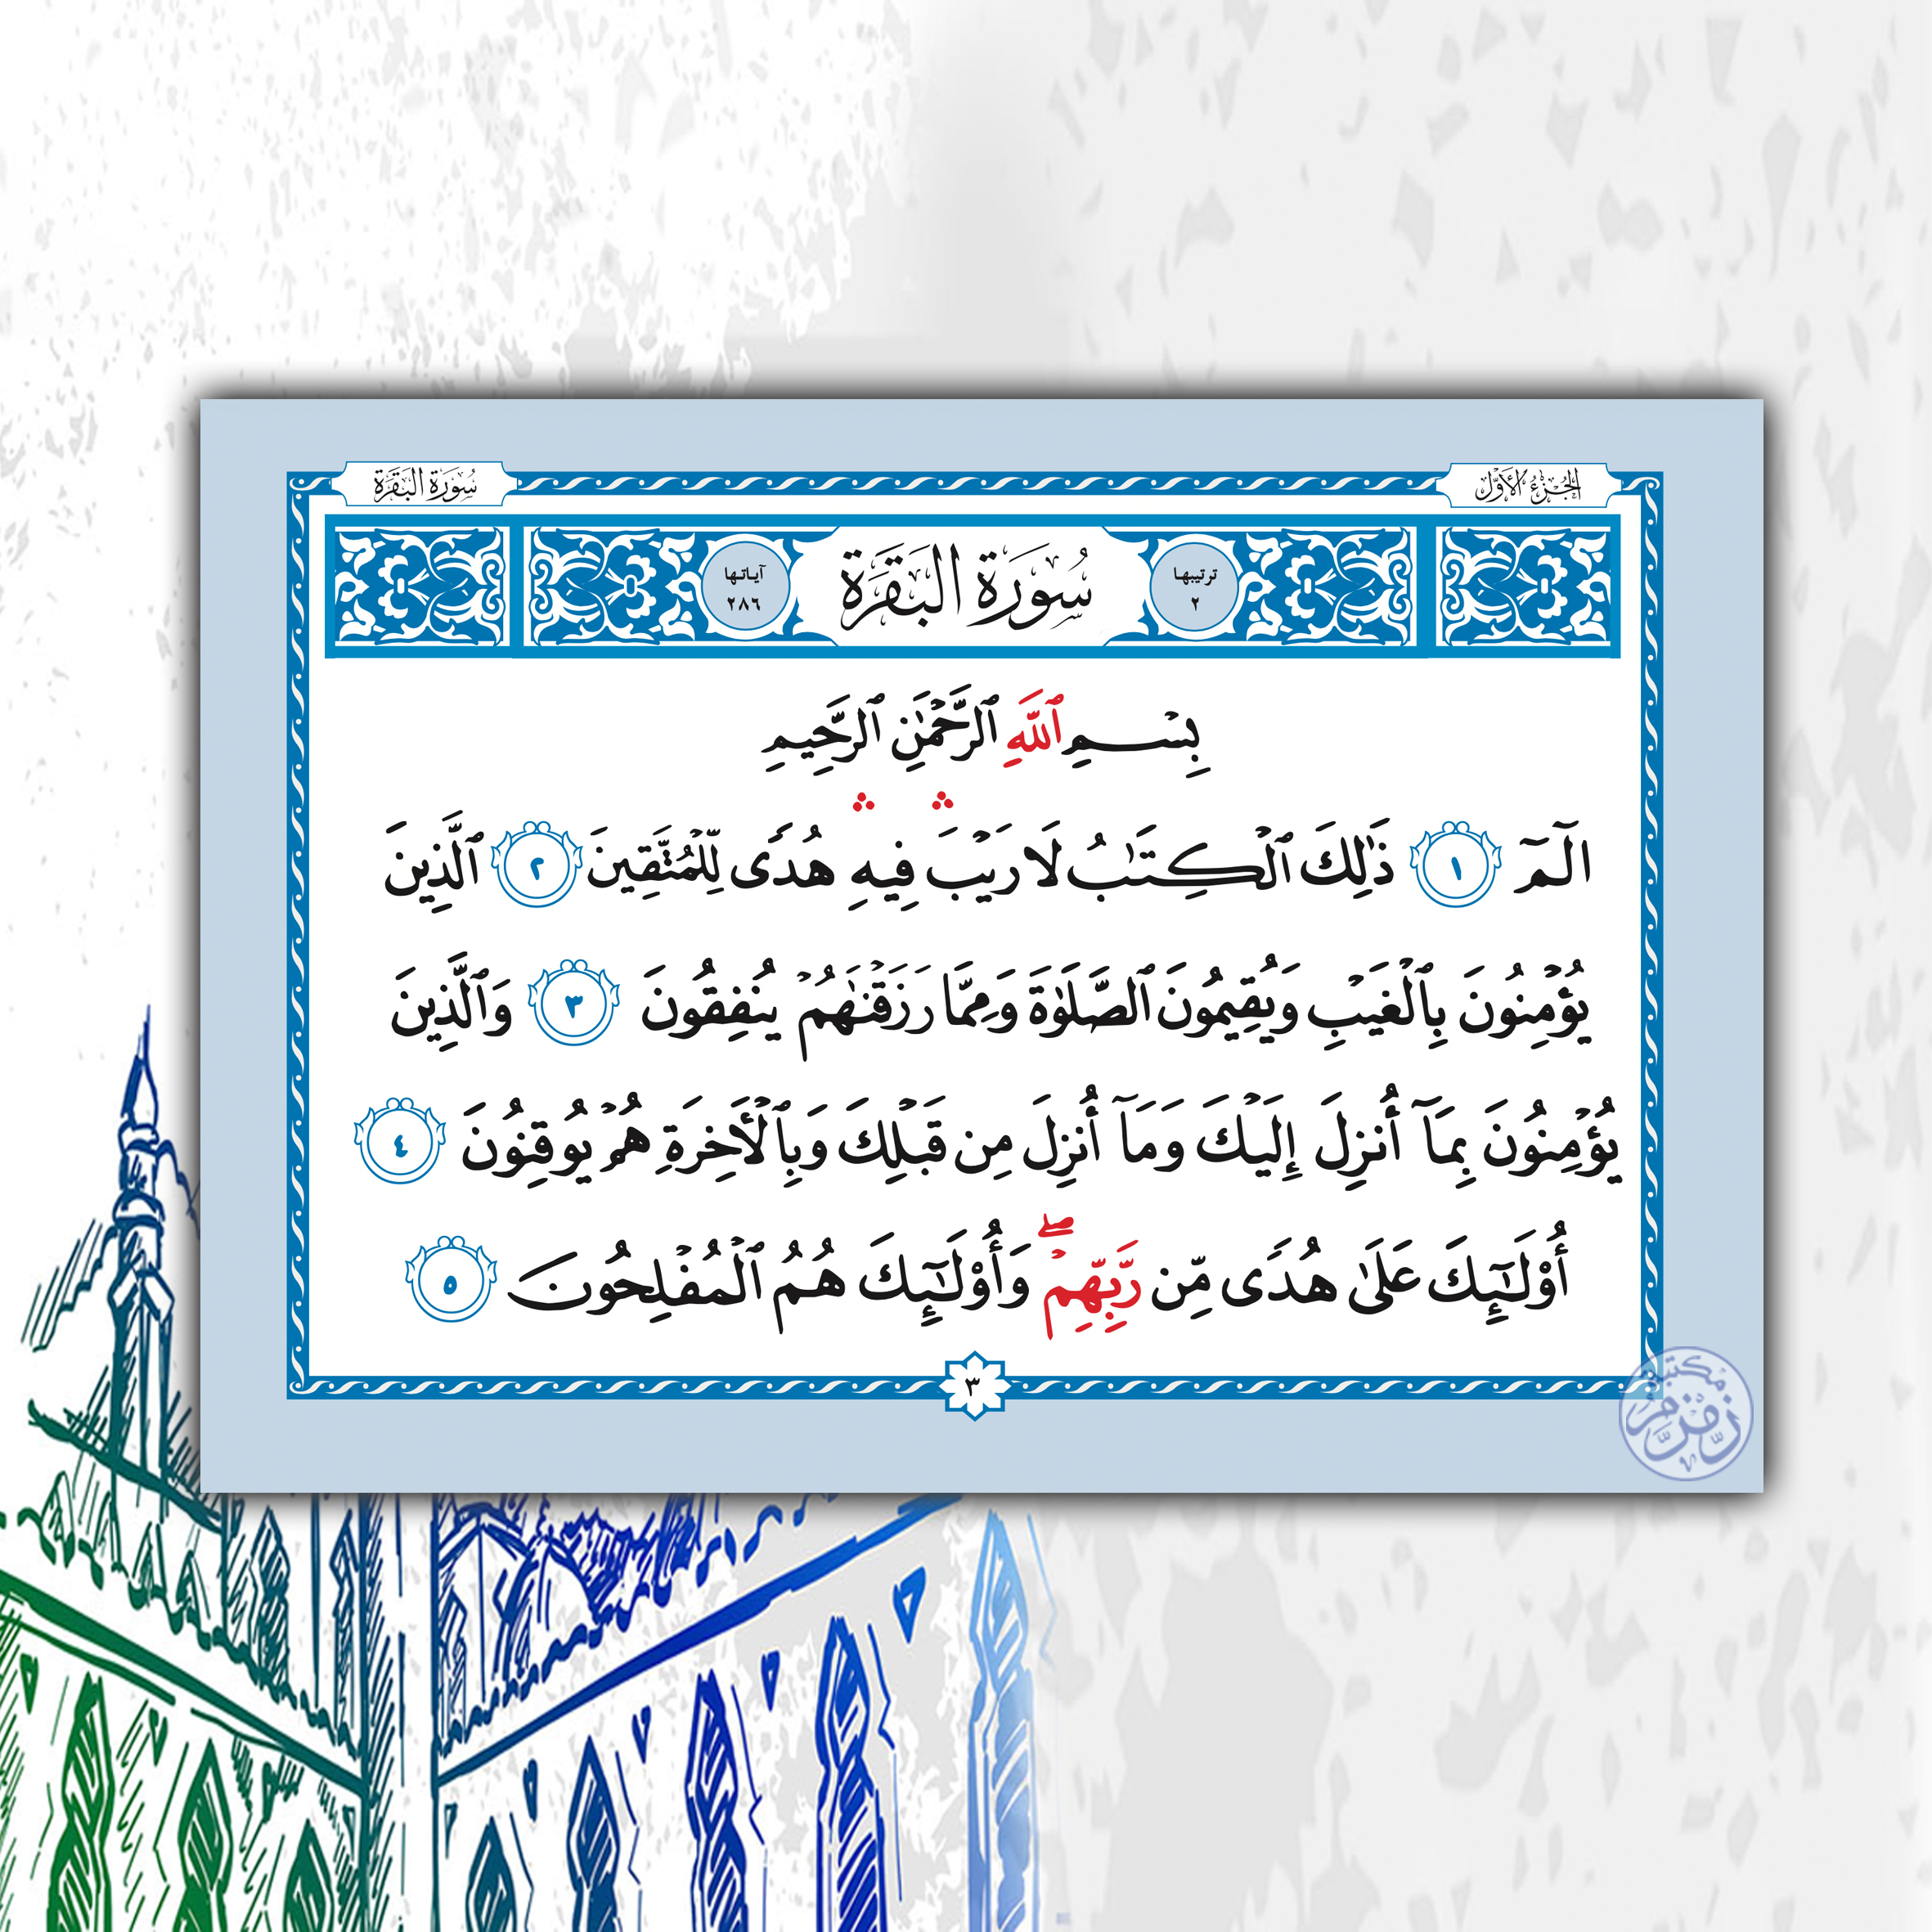 الجزء الأول
سورة البقرة
ترتيبها ٢
سُورَةُ البَقَرَةِ
آياتها ٢٨٦
بِسْمِ ٱللَّهِ ٱلرَّحْمَٰنِ ٱلرَّحِيمِ
الٓمٓ ١ ذَٰلِكَ ٱلْكِتَٰبُ لَا رَيْبَ ۛ فِيهِ ۛ هُدًى لِّلْمُتَّقِينَ ٢ ٱلَّذِينَ
يُؤْمِنُونَ بِٱلْغَيْبِ وَيُقِيمُونَ ٱلصَّلَوٰةَ وَمِمَّا رَزَقْنَٰهُمْ يُنفِقُونَ ٣ وَٱلَّذِينَ
يُؤْمِنُونَ بِمَآ أُنزِلَ إِلَيْكَ وَمَآ أُنزِلَ مِن قَبْلِكَ وَبِٱلْأَخِرَةِ هُمْ يُوقِنُونَ ٤
أُوْلَٰٓئِكَ عَلَىٰ هُدًى مِّن رَّبِّهِمْ ۖ وَأُوْلَٰٓئِكَ هُمُ ٱلْمُفْلِحُونَ ٥
٣
مكتبة
زمزم